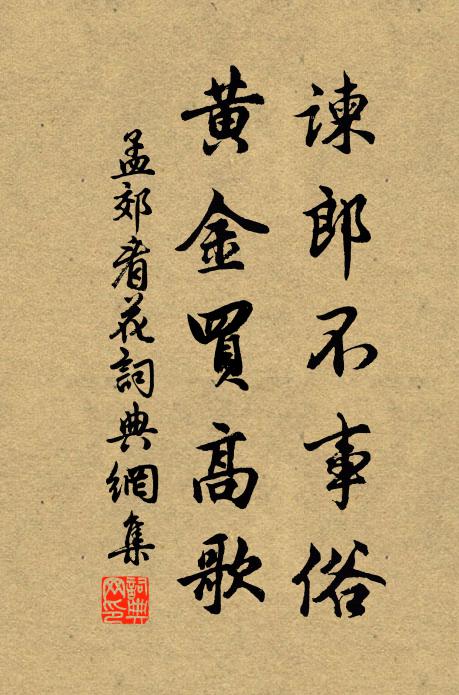 諫郎不事俗
黃金買高歌
孟郊看花詞典網集
詞典網印